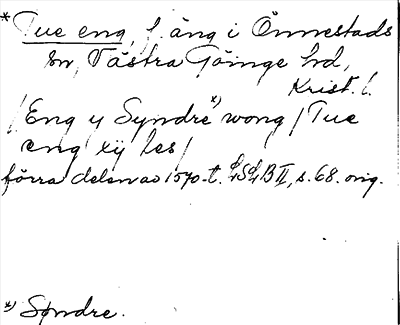 * Tue eng, f. äng i Önnestads
sn, Västra Göinge hd,
Krist. l.
/Eng y Syndre *) wong / Tue
eng xij les/
förra delen av 1570-t. LSLB II, s. 68. orig.
*) Spndre.